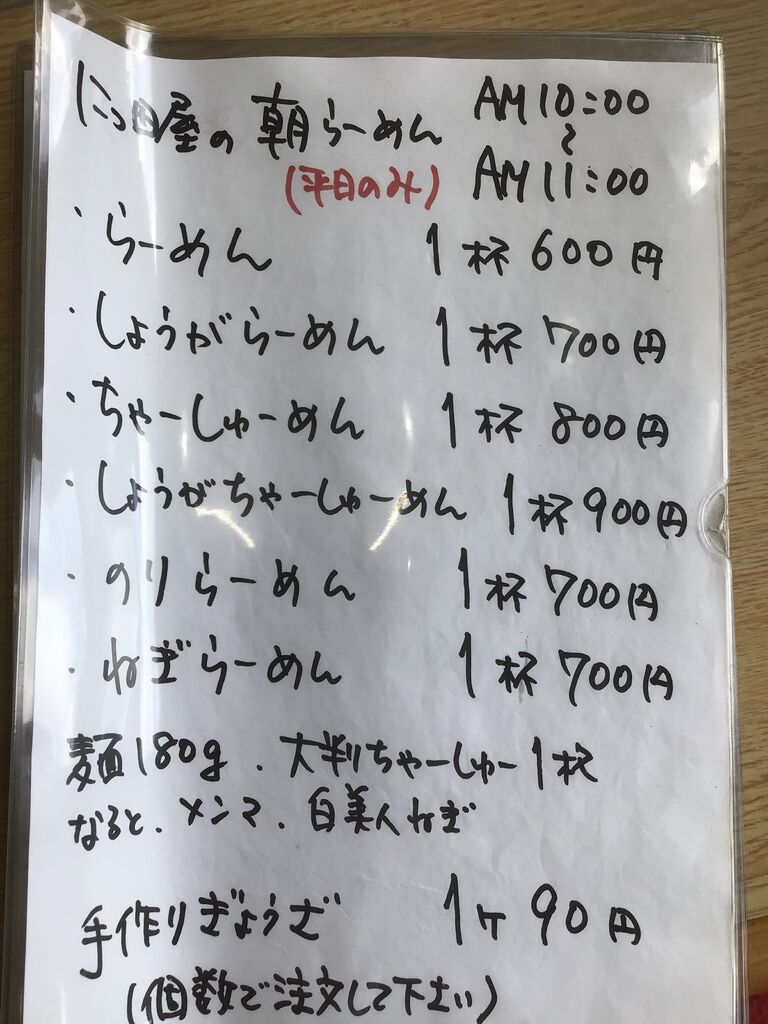 にっ田屋の朝らーめん AM10:00
〜
(平日のみ) AM11:00
・らーめん 1杯600円
・しょうがらーめん 1杯700円
・ちゃーしゅーめん 1杯800円
・しょうがちゃーしゅーめん 1杯900円
・のりらーめん 1杯700円
・ねぎらーめん 1杯700円
麺180g、大判ちゃーしゅー1枚
なると、メンマ、白美人ねぎ
手作りぎょうざ 1ケ90円
(個数で注文して下さい)